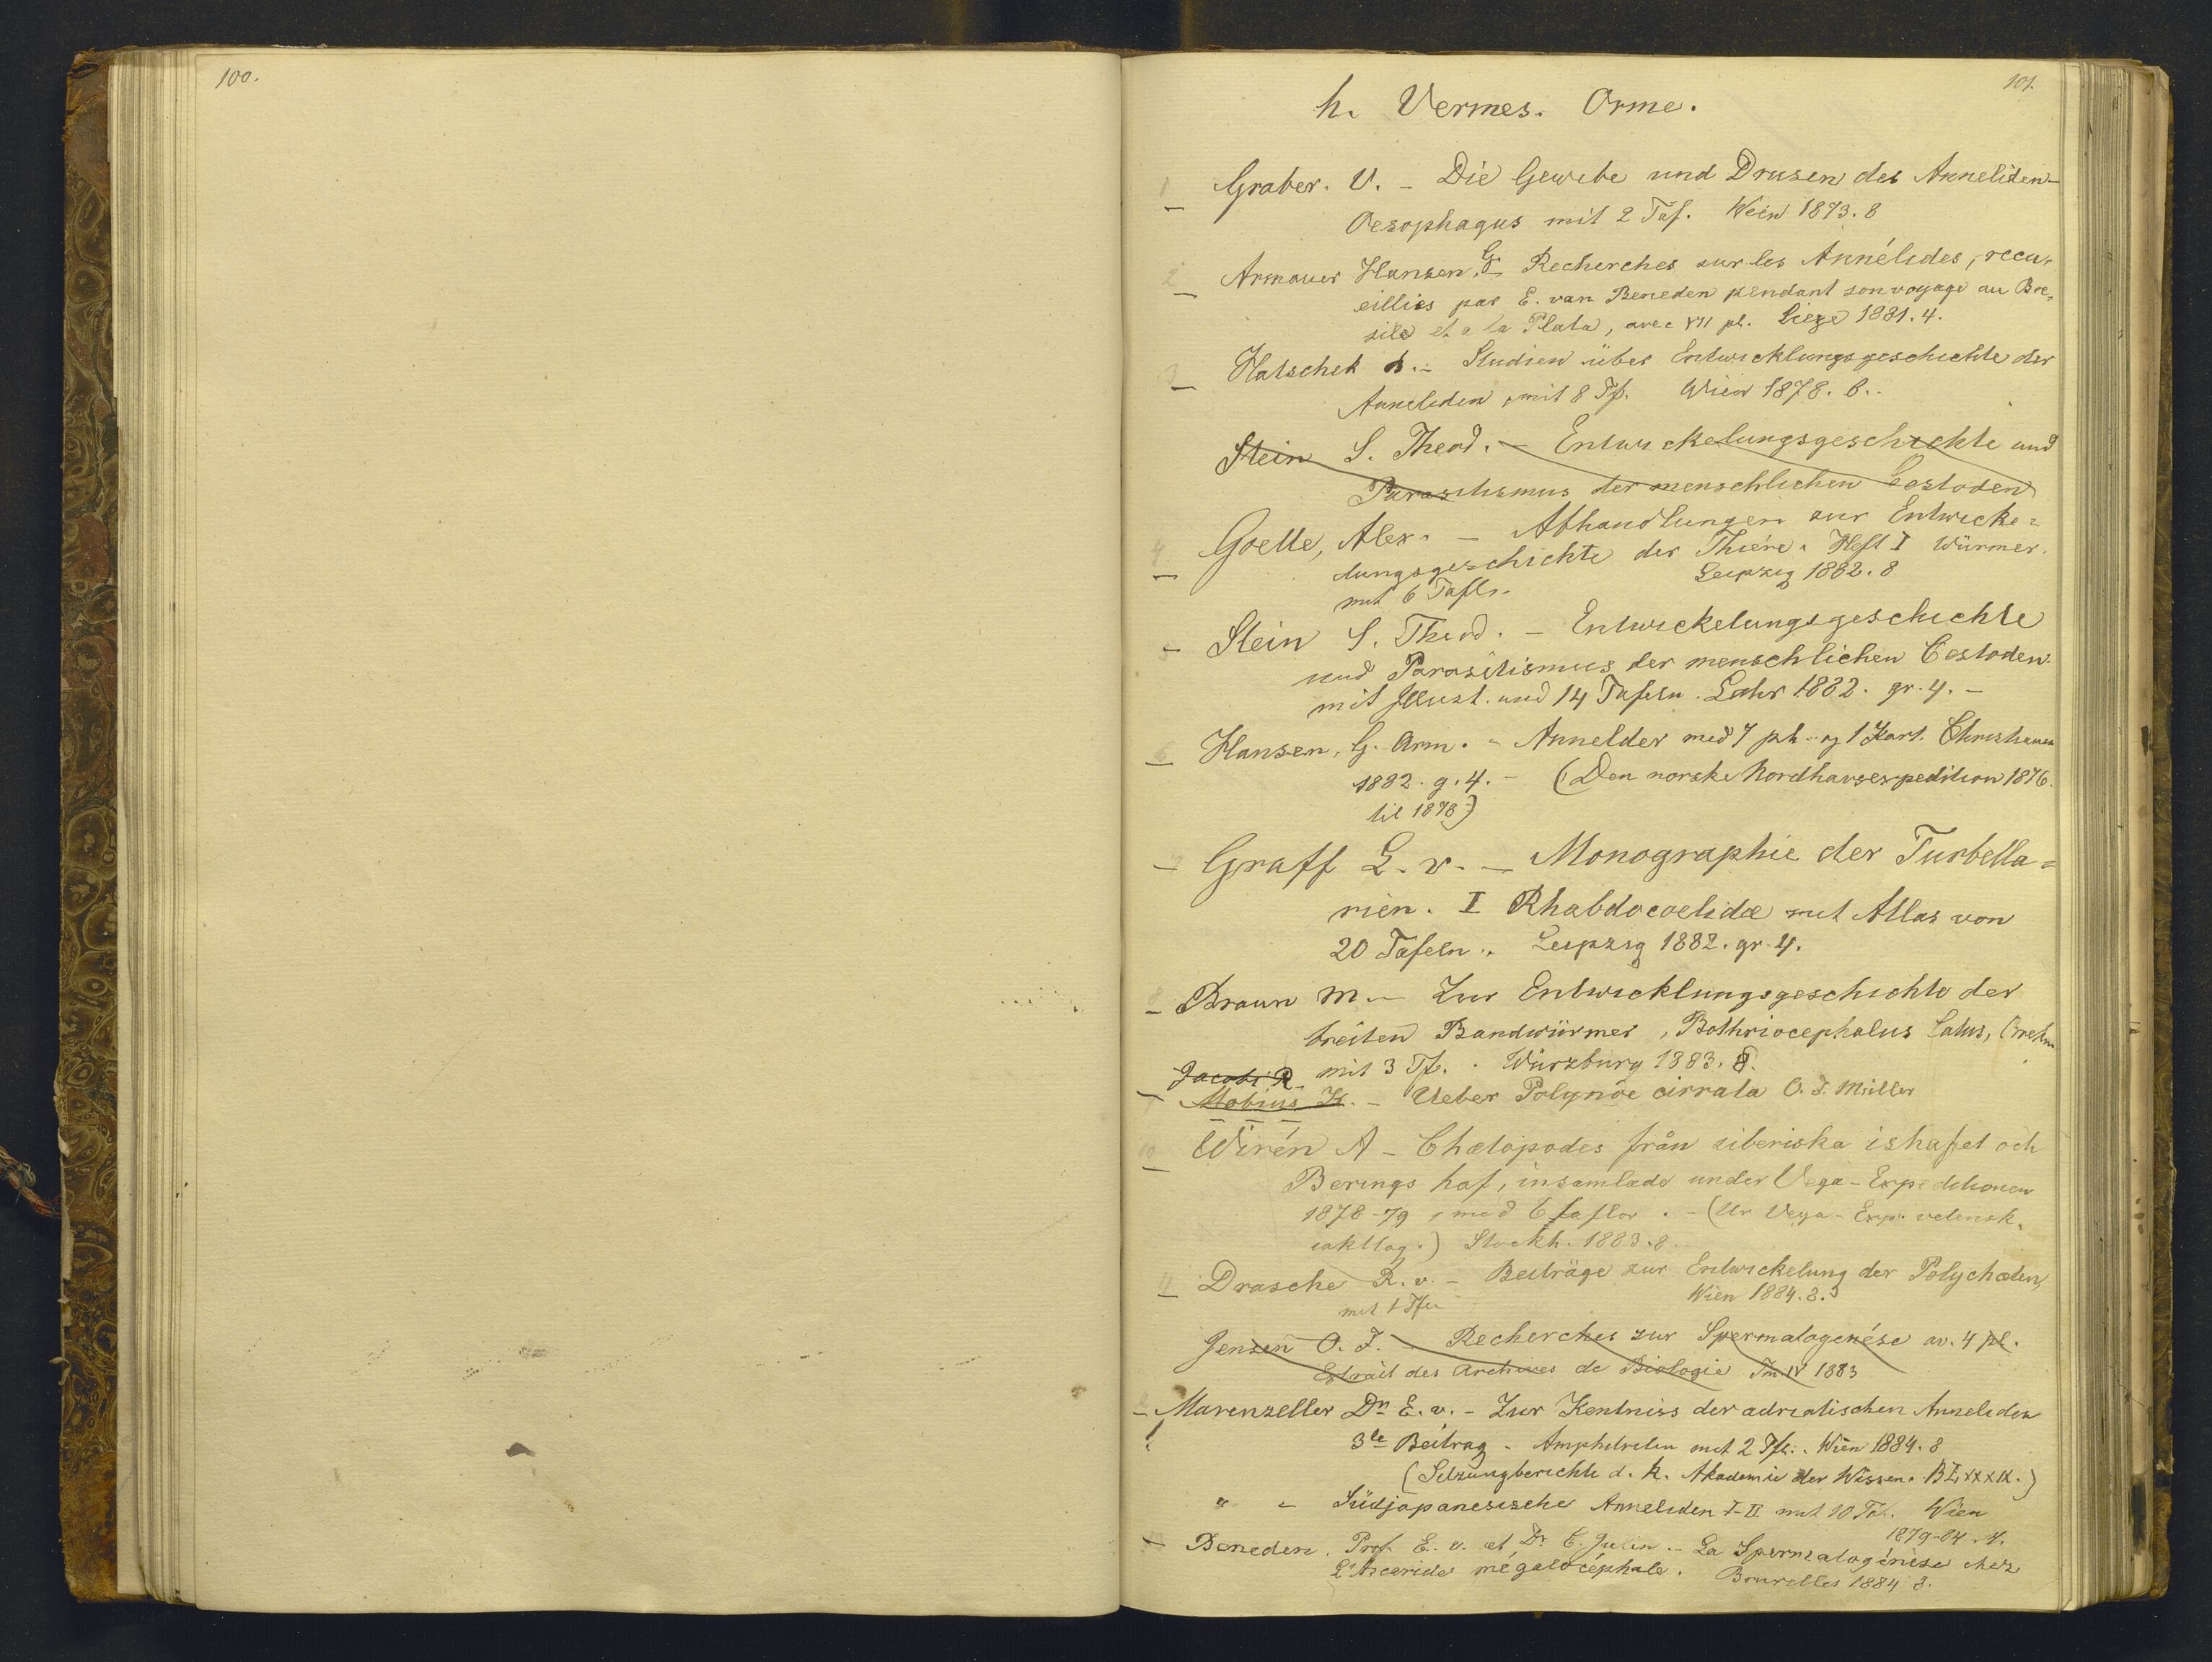 100.
101.
h. Vermes. Orme.
1 Graber. V. - Die Gewebe und Drusen des Anneliden-
Oesophagus mit 2 Taf. Wein 1873. 8
2 Armauer Hansen, G - Recherches sur les Annélides, recu-
eillies par E. van Beneden pendant son voyage au Bre-
sile et a la Plata, avec VII pl. Liege 1881. 4.
3 Hatschek B. - Studien über Entwicklungsgeschichte der
Anneliden, mit 8 Tf. Wien 1878. 8..
Stein S. Theod. - Entwickelungsgeschichte und
Parasitismus der menschlichen Cestoden
4 Goette, Alex. - Abhandlungen zur Entwicke=
lungsgeschichte der Thiere. Heft I Würmer.
mit 6 Tafln. Leipzig 1882. 8
5 Stein S. Theod. - Entwickelungsgeschichte
und Parasitismus der menschlichen Cestoden.
mit Illust. und 14 Tafeln. Lahr 1882. gr. 4. -
6 Hansen, G. Arm. - Annelider med 7 pl. og 1 Kart. Christiania
1882. g. 4. - (Den norske Nordhavsexpedition 1876
til 1878)
7 Graff L. v. - Monographie der Turbella=
rien. I Rhabdocoelidæ mit Atlas von
20 Tafeln. Leipzig 1882. gr. 4.
8 Braun M. - Zur Entwicklungsgeschichte der
breiten Bandwürmer, Bothriocephalus Latus, Brehm
mit 3 Tf. Würzburg 1883. 8.
Jacobi R.
Mobius K. - Ueber Polynöe cirrata O. F. Müller
10 Wirén A - Chætopodes från siberiska ishafvet och
Berings haf, insamlade under Vega-Expeditionen
1878-79, med 6 taflor. - (Ur Vega-Exp. vetensk.
iakttag.) Stockh. 1883. 8.
11 Drasche R. v. - Beiträge zur Entwickelung der Polychæten,
mit 1 Tfl Wien 1884. 8.
Jensen O. S. - Recherches sur Spermatogenése av. 4 pl.
Extrait des Archives de Biologie Tm IV 1883
12 Marenzeller Dr E. v. - Zur Kentniss der adriatischen Anneliden
3te Beitrag - Amphitriten mit 2 Tfl. Wien 1884. 8
(Sitzungberichte d. K. Akademie der Wissen. BLXXXIX.)
" - Südjapanesische Anneliden I-II mit 10 Taf. Wien
1879-84. 4.
13 Beneden. Prof. E. v. et Dr C. Julin - La Spermatogénèse chez
L'Ascaride mégalocéphale. Bruxelles 1884 8.